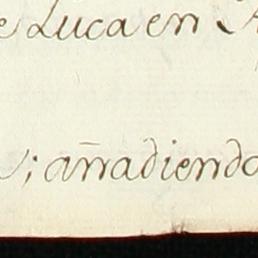 e Luca en
; añadiendo